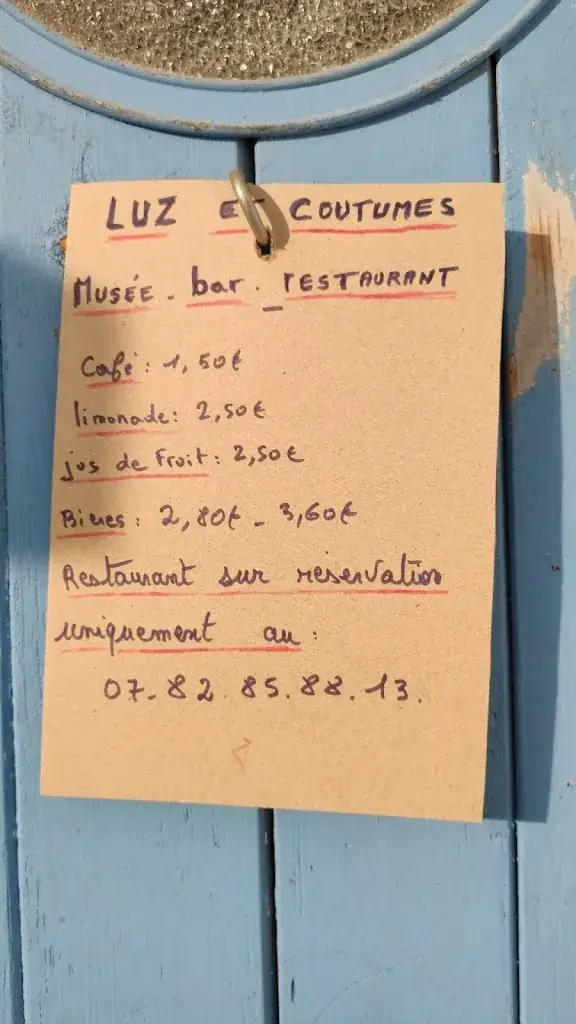 LUZ ET COUTUMES
MUSÉE - bar - rESTAURANT
Café : 1,50€
limonade : 2,50€
jus de Fruit : 2,50€
Bières : 2,80€ - 3,60€
Restaurant sur réservation
uniquement au :
07. 82. 85. 88. 13.